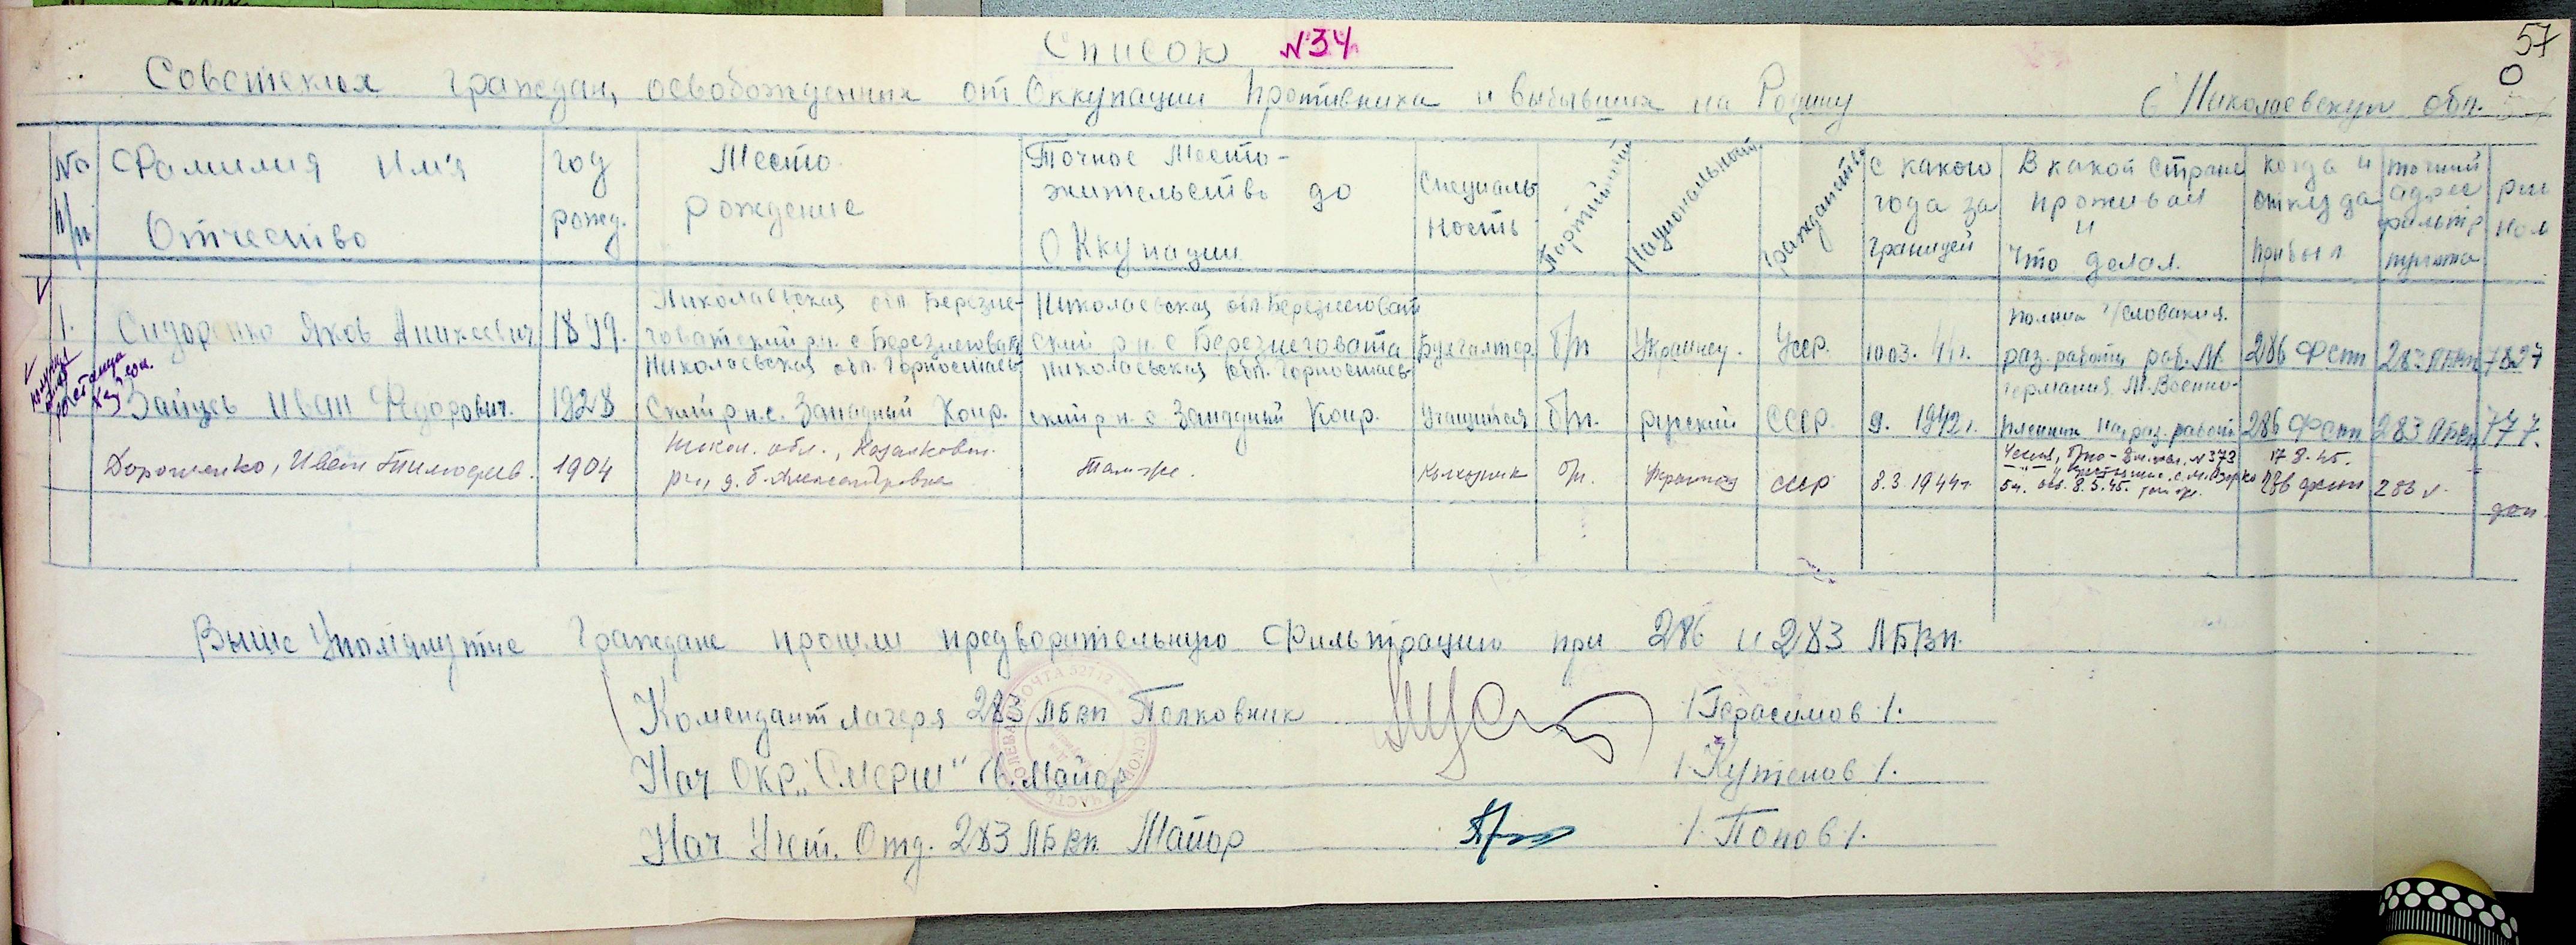 57
0
Список №34
Советских граждан, освобожденных от Оккупации Противника и выбывших на Родину в Николаевскую обл.
№ п/п
Фамилия Им'я Отчество
год рожд.
Место рождение
Точное Место-жительство до Оккупации
Специальность
Партийный
Национальный
гражданство
с какого года за границей
В какой стране проживал и что делал.
когда и откуда прибыл
точный адрес фильтр пункта
1. Сидоренко Яков Аникеевич 1899. Николаевская обл. Березнеговатский р.н. с Березнеговата Николаевская обл Березнеговатский р н. с Березнеговата Бухгалтер б/п Украинец. Усср. 10 03. 44г. раз. работы раб. М. 286 Фспп 283 ЛБВп 7827
Зайцев Иван Федорович. 1928 Николаевская обл. Горностаевский р н. с. Западный Коир. Николаевская обл. Горностаевский р н. с Западный Коир. Учащийся б/п. русский СССР 9. 1942г. Германия. М. Военно-пленник на раз. работ 286 Фспп 283 ЛБВп 777.
Дорошенко, Иван Тимофеев. 1904 Никол. обл., Казанковск. р-н, д. б. Александровка Там-же. Колхозник б/п. Украинец СССР 8.3.1944г 17.8.45. 286 фспп 286 л.
доп.
Выше Упомянутые Граждане прошли предворительную Фильтрацию при 286 и 283 ЛБВп.
Комендант лагеря 283 ЛБВп Полковник /Герасимов/.
Нач Окр. "Смерш" Гв. Майор /Кутепов/.
Нач Учет. Отд. 283 ЛБВп. Майор /Попов/.